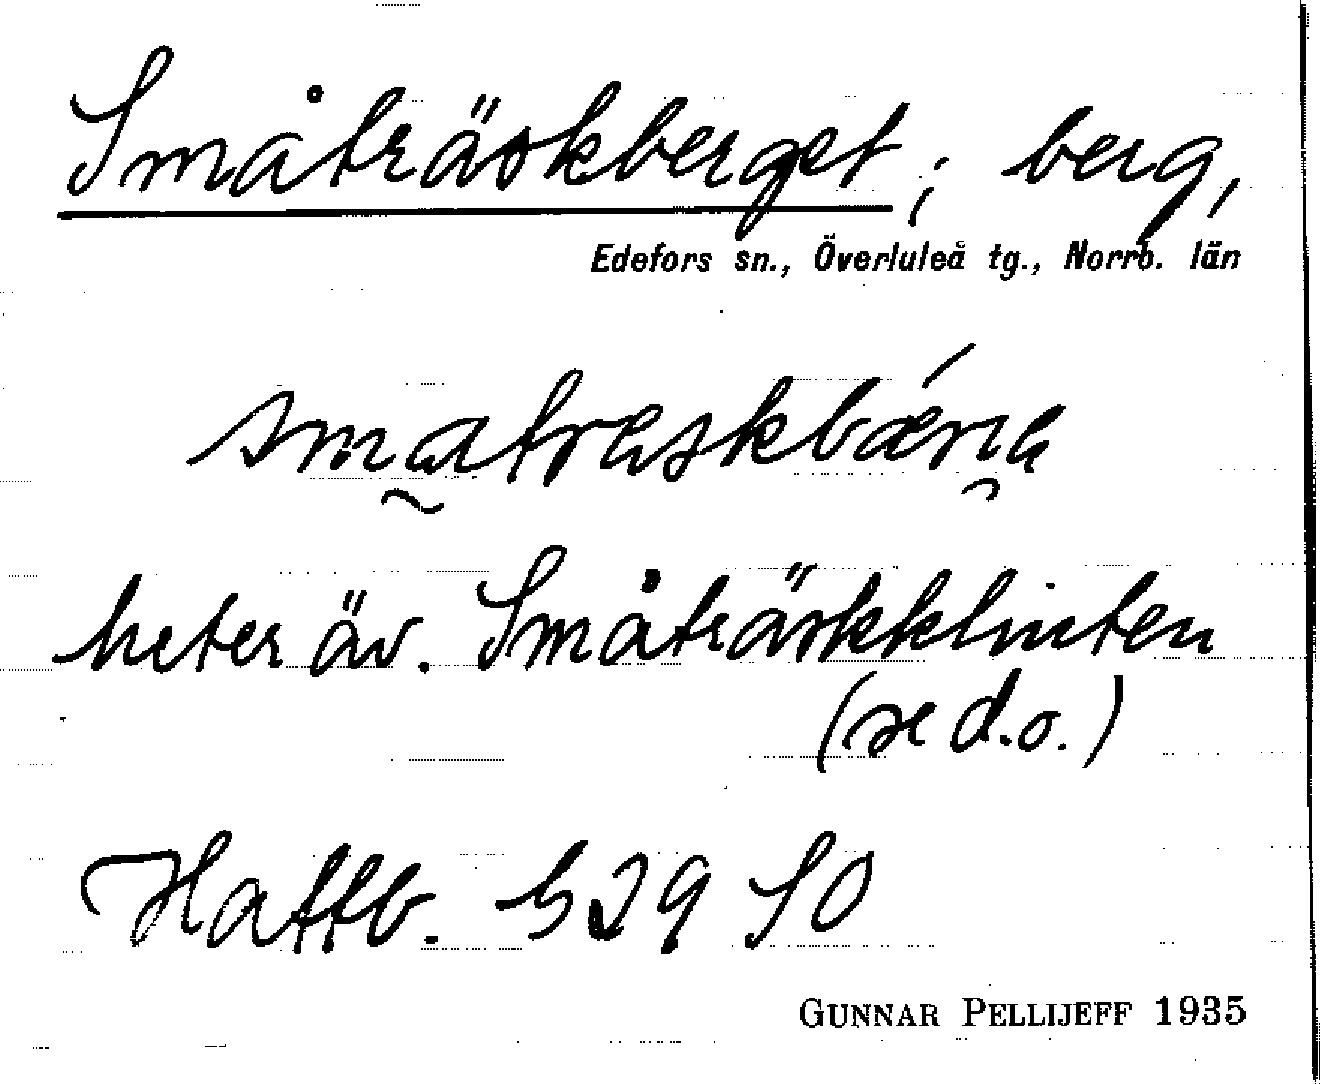 Småträskberget; berg,
Edefors sn., Överluleå tg., Norrb. län
heter äv. Småträskklinten
(se d.o.)
Haftb. 529 SO
GUNNAR PELLIJEFF 1935